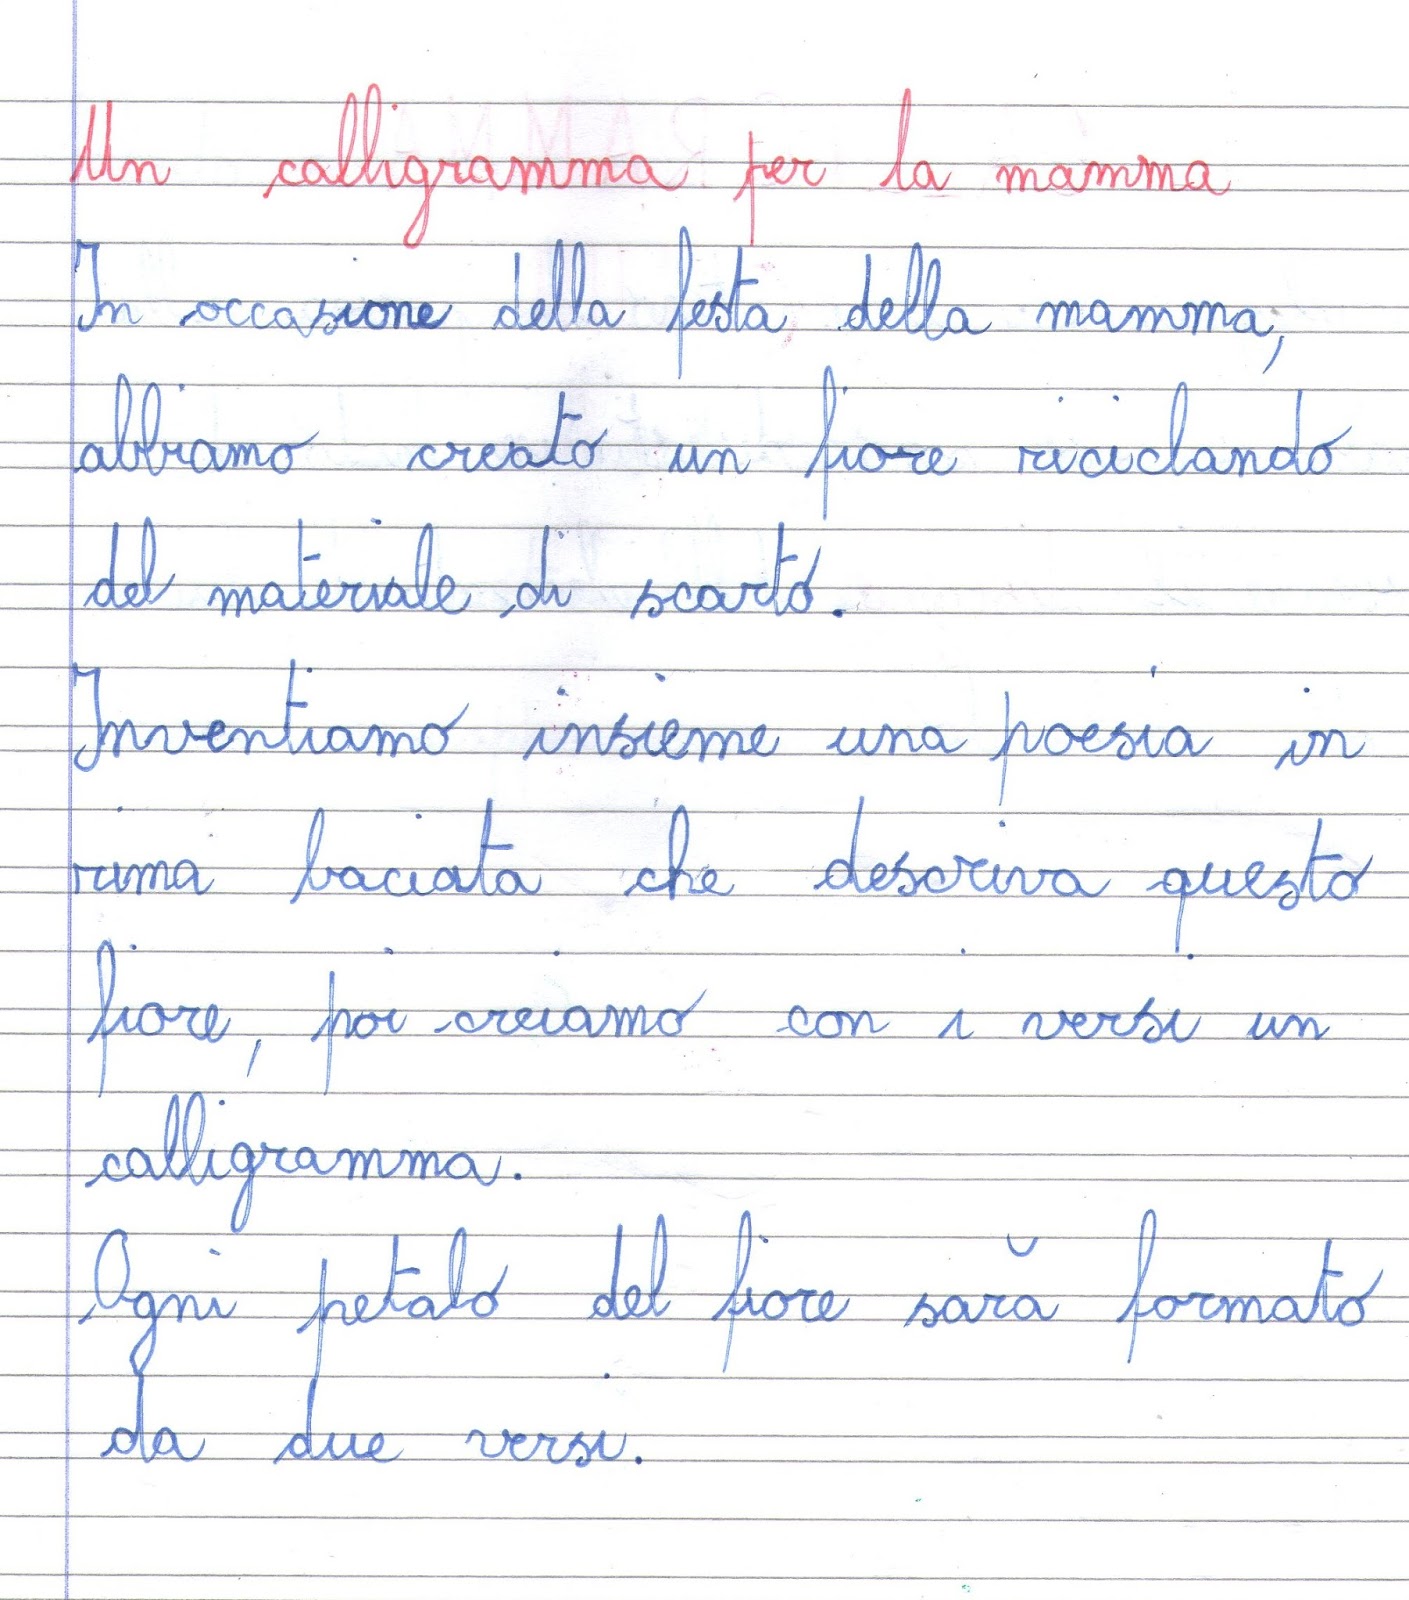 Un calligramma per la mamma
In occasione della festa della mamma,
abbiamo creato un fiore riciclando
del materiale di scarto.
Inventiamo insieme una poesia in
rima baciata che descriva questo
fiore, poi creiamo con i versi un
calligramma.
Ogni petalo del fiore sară formato
da due versi.